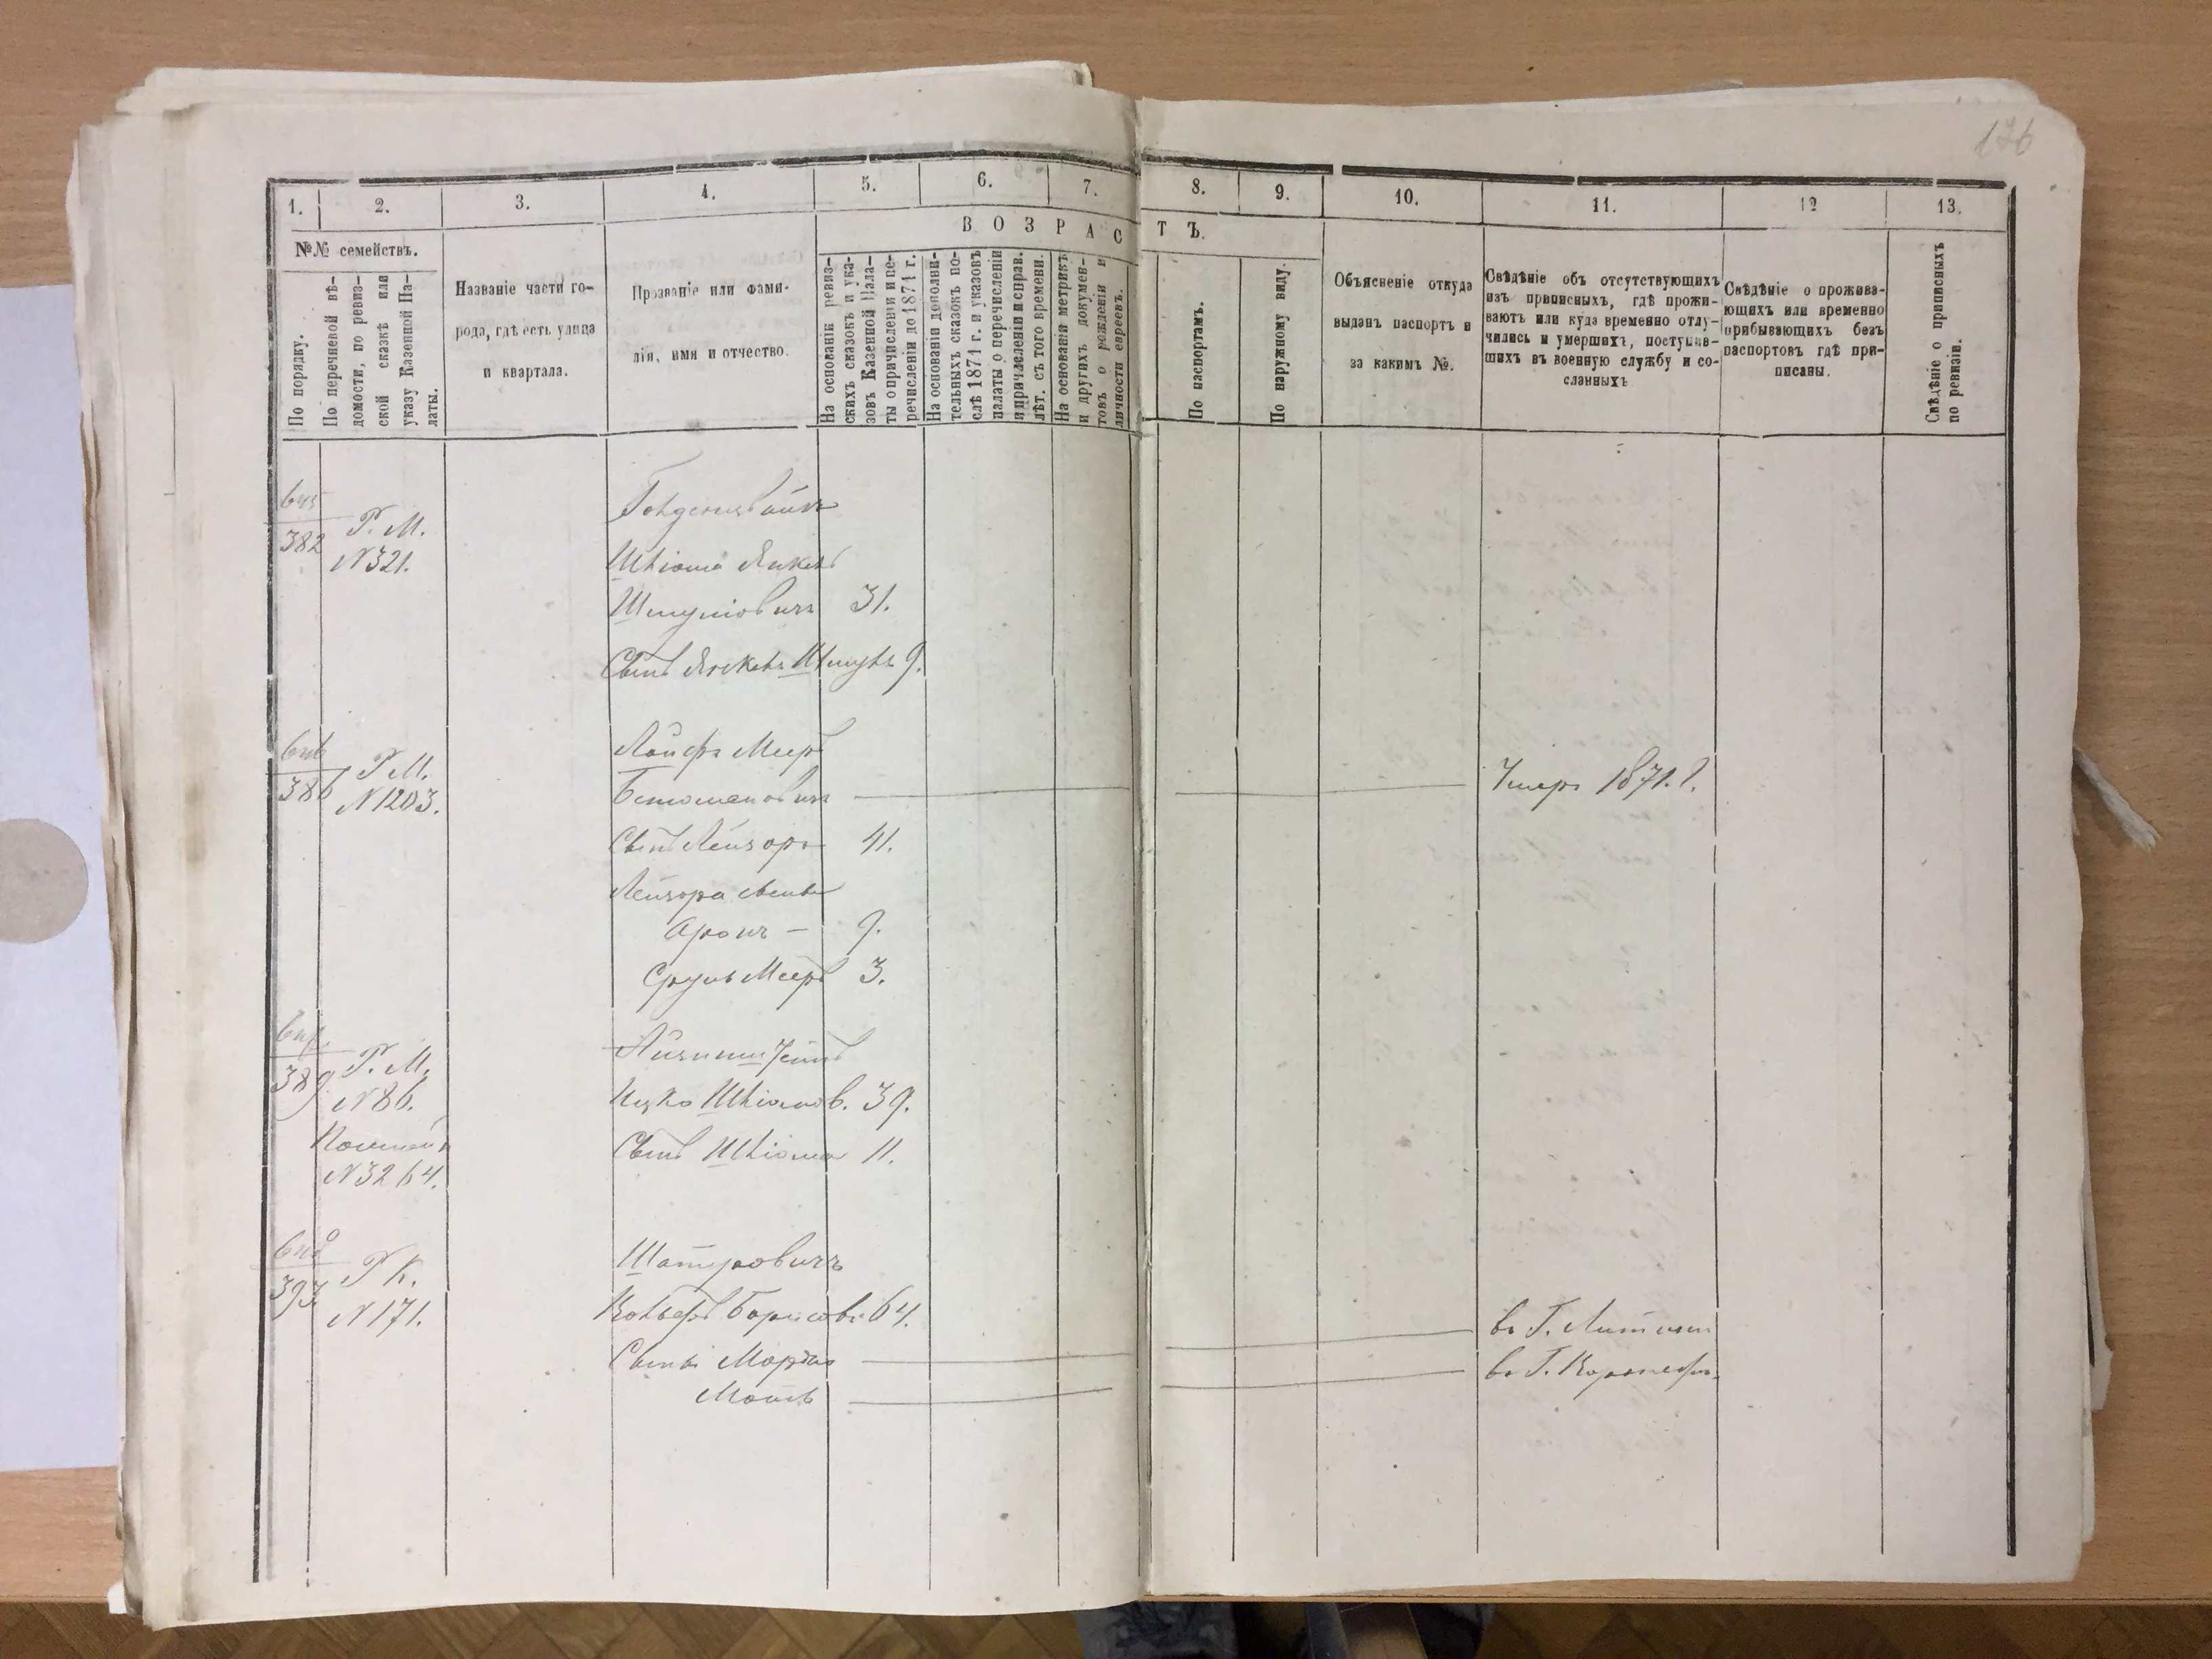 176
1. 2. 3. 4. 5. 6. 7. 8. 9. 10. 11. 12 13.
№№ семействъ.
По порядку.
По перечневой вѣ-
домости, по ревиз-
ской сказкѣ или
указу Казенной Па-
латы.
Названіе части го-
рода, гдѣ есть улица
и квартала.
Прозваніе или фами-
лія, имя и отчество.
ВОЗРАСТЪ.
На основаніи ревиз-
скихъ сказокъ и ука-
зовъ Казенной Пала-
ты о причисленіи и пе-
речисленіи до 1871 г.
На основаніи дополни-
тельныхъ сказокъ по-
слѣ 1871 г. и указовъ
палаты о перечисленіи
и причисленіи исправ.
лѣт. съ того времени.
На основаніи метрикъ
и другихъ докумен-
товъ о рожденіи и
личности евреевъ.
По паспортамъ.
По наружному виду.
Объясненіе откуда
выданъ паспортъ и
за какимъ №.
Свѣдѣніе объ отсутствующихъ
изъ приписныхъ, гдѣ прожи-
ваютъ или куда временно отлу-
чились и умершихъ, поступив-
шихъ въ военную службу и со-
сланныхъ
Свѣдѣніе о прожива-
ющихъ или временно
прибывающихъ безъ
паспортовъ гдѣ при-
писаны.
Свѣдѣніе о приписныхъ
по ревизіи.
382 Р. М.
N 321.
Шліома Янкель
Шмуліовичъ 31.
Сынъ Янкель Шмуль 9.
386 Р М.
N 1203.
Мееръ
Умеръ 1871. г.
Сынъ Лейзоръ 41.
Лейзора сыновья
Аронъ — 9.
Сруль Мееръ 3.
389 Р. М.
N 86.
N 3264.
Ицко Шліомов. 39.
Сынъ Шліома 11.
393 Р К.
N 171.
Шатровичъ
Вольфъ Борисовъ 64.
Сынъ Мордко
въ Г. Литинѣ
Мошь
въ Г.